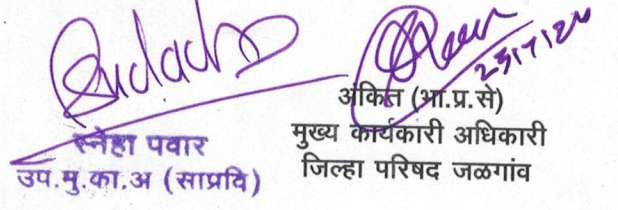 23/7/24
स्नेहा पवार
उप.मु.का.अ (साप्रवि)
अंकित (भा.प्र.से)
मुख्य कार्यकारी अधिकारी
जिल्हा परिषद जळगांव